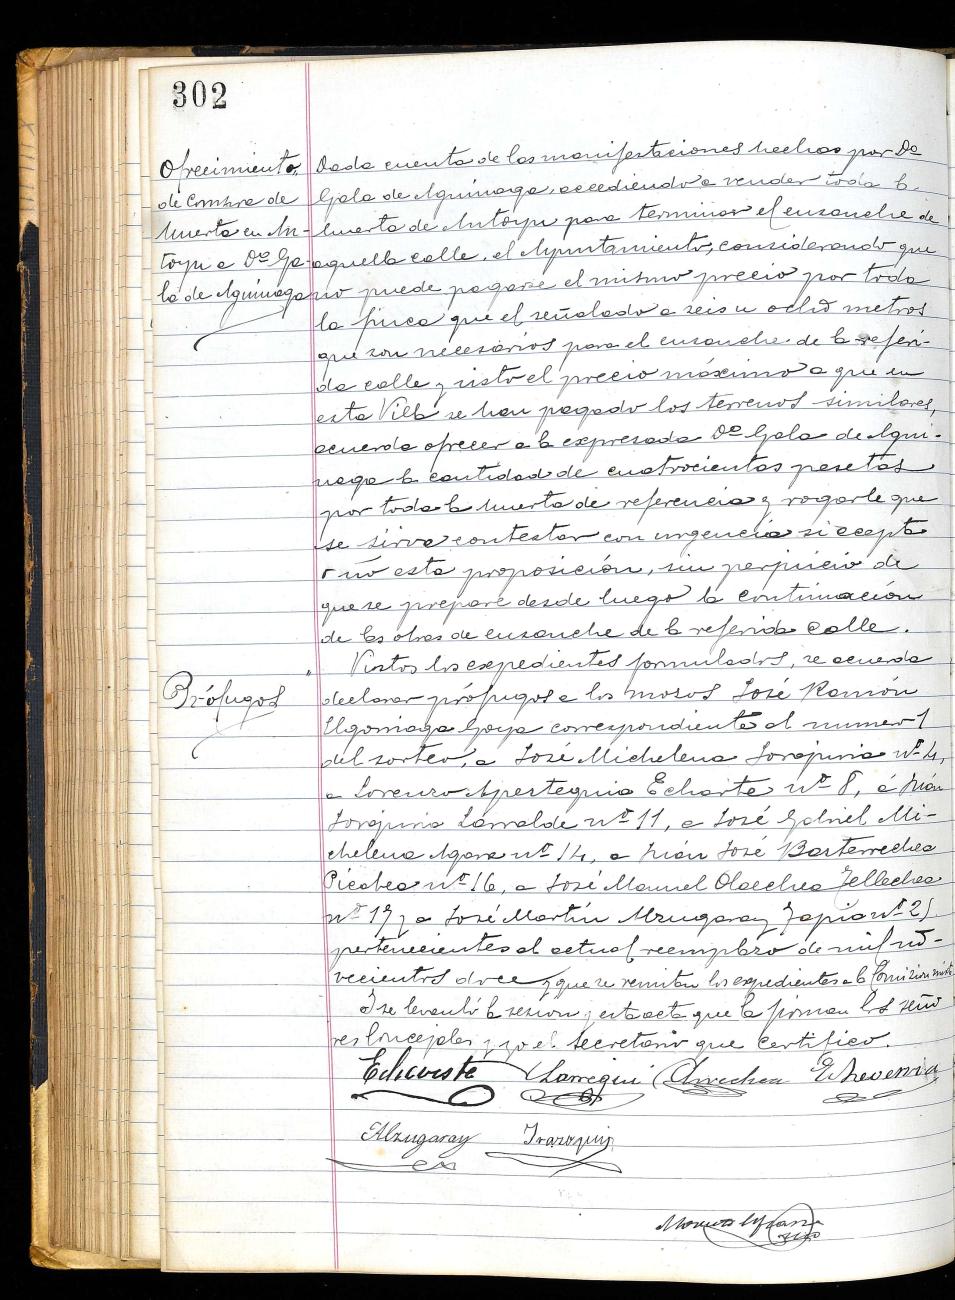 302
Ofrecimiento
de compra de
huerta en An-
toyu a Dª Ga-
la de Aguinaga
Dada cuenta de las manifestaciones hechas por Dª
Gala de Aguinaga, accediendo a vender toda la
huerta de Antoyu para terminar el ensanche de
aquella calle, el Ayuntamiento, considerando que
no puede pagarse el mismo precio por toda
la finca que el señalado a seis u ocho metros
que son necesarios para el ensanche de la referi-
da calle y visto el precio máximo a que en
esta Villa se han pagado los terrenos similares,
acuerda ofrecer a la expresada Dª Gala de Agui-
naga la cantidad de cuatrocientas pesetas
por toda la huerta de referencia y rogarle que
se sirva contestar con urgencia si acepta
o no esta proposición, sin perjuicio de
que se prepare desde luego la continuación
de las obras de ensanche de la referida calle.
Prófugos
Vistos los expedientes formulados, se acuerda
declarar prófugos a los mozos José Ramón
Goya correspondiente al numero 1
del sorteo, a José Michelena nº 4,
a Lorenzo Apesteguia Echarte nº 8, á Juán
Larralde nº 11, a José Gabriel Mi-
chelena nº 14, a Juán José Bastarrechea
Picabea nº 16, a José Manuel Olaechea Tellechea
nº 17 y a José Martín Alzugaray Tapia nº 21
pertenecientes al actual reemplazo de mil no-
vecientos doce y que se remitan los expedientes a la Comision mixta
Y se levantó la sesion y esta acta que la firman los seño
res Concejales y yo el Secretario que certifico.
Echeveste Larregui Arrechea Echeverria
Alzugaray Irazoqui